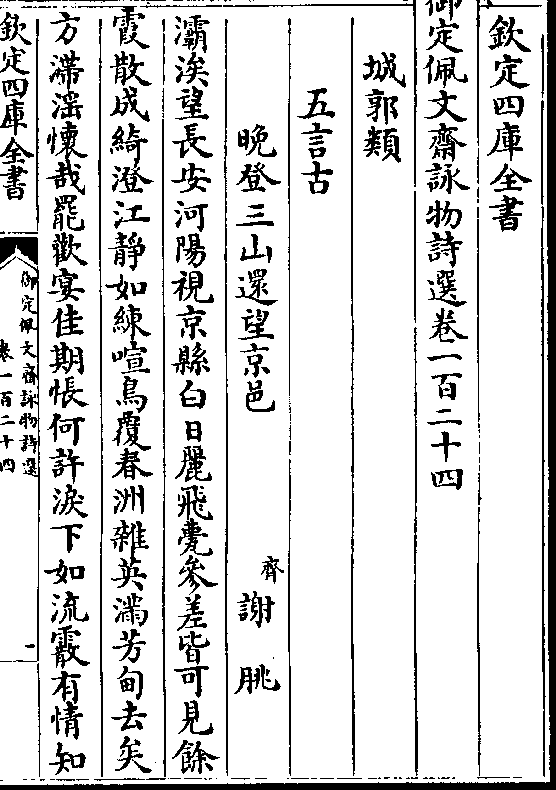 欽定四庫全書
御定佩文齋詠物詩選卷一百二十四
城郭類
五言古
晚登三山還望京邑
齊謝朓
灞涘望長安河陽視京縣白日麗飛甍參差皆可見餘
霞散成綺澄江靜如練喧鳥覆春洲雜英滿芳甸去矣
方滯淫懷哉罷歡宴佳期悵何許淚下如流霰有情知
欽定四庫全書
御定佩文齋詠物詩選
卷一百二十四
一